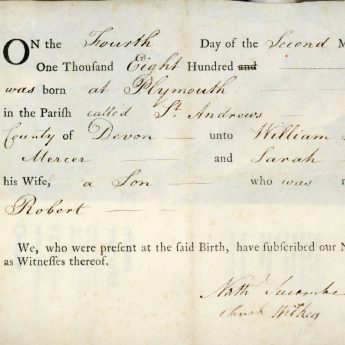 ON the Fourth Day of the Second M
One Thousand Eight Hundred and
was born at Plymouth
in the Parish called St. Andrews
County of Devon unto William
Mercer and Sarah
his Wife, a Son who was
Robert
We, who were present at the said Birth, have subscribed our N
as Witnesses thereof.
Sarah